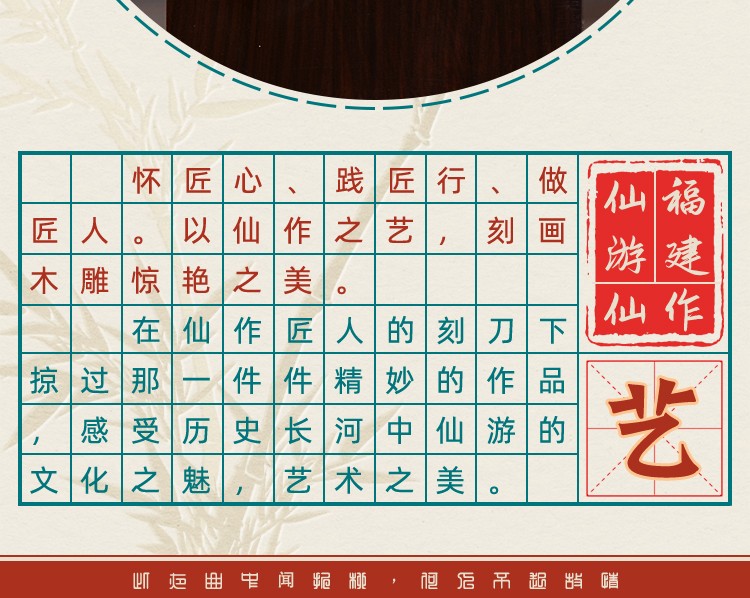 怀匠心、践匠行、做
匠人。以仙作之艺，刻画
木雕惊艳之美。
在仙作匠人的刻刀下
掠过那一件件精妙的作品
，感受历史长河中仙游的
文化之魅，艺术之美。
福建
仙游
仙作
艺
曲中闻折柳，何不起故